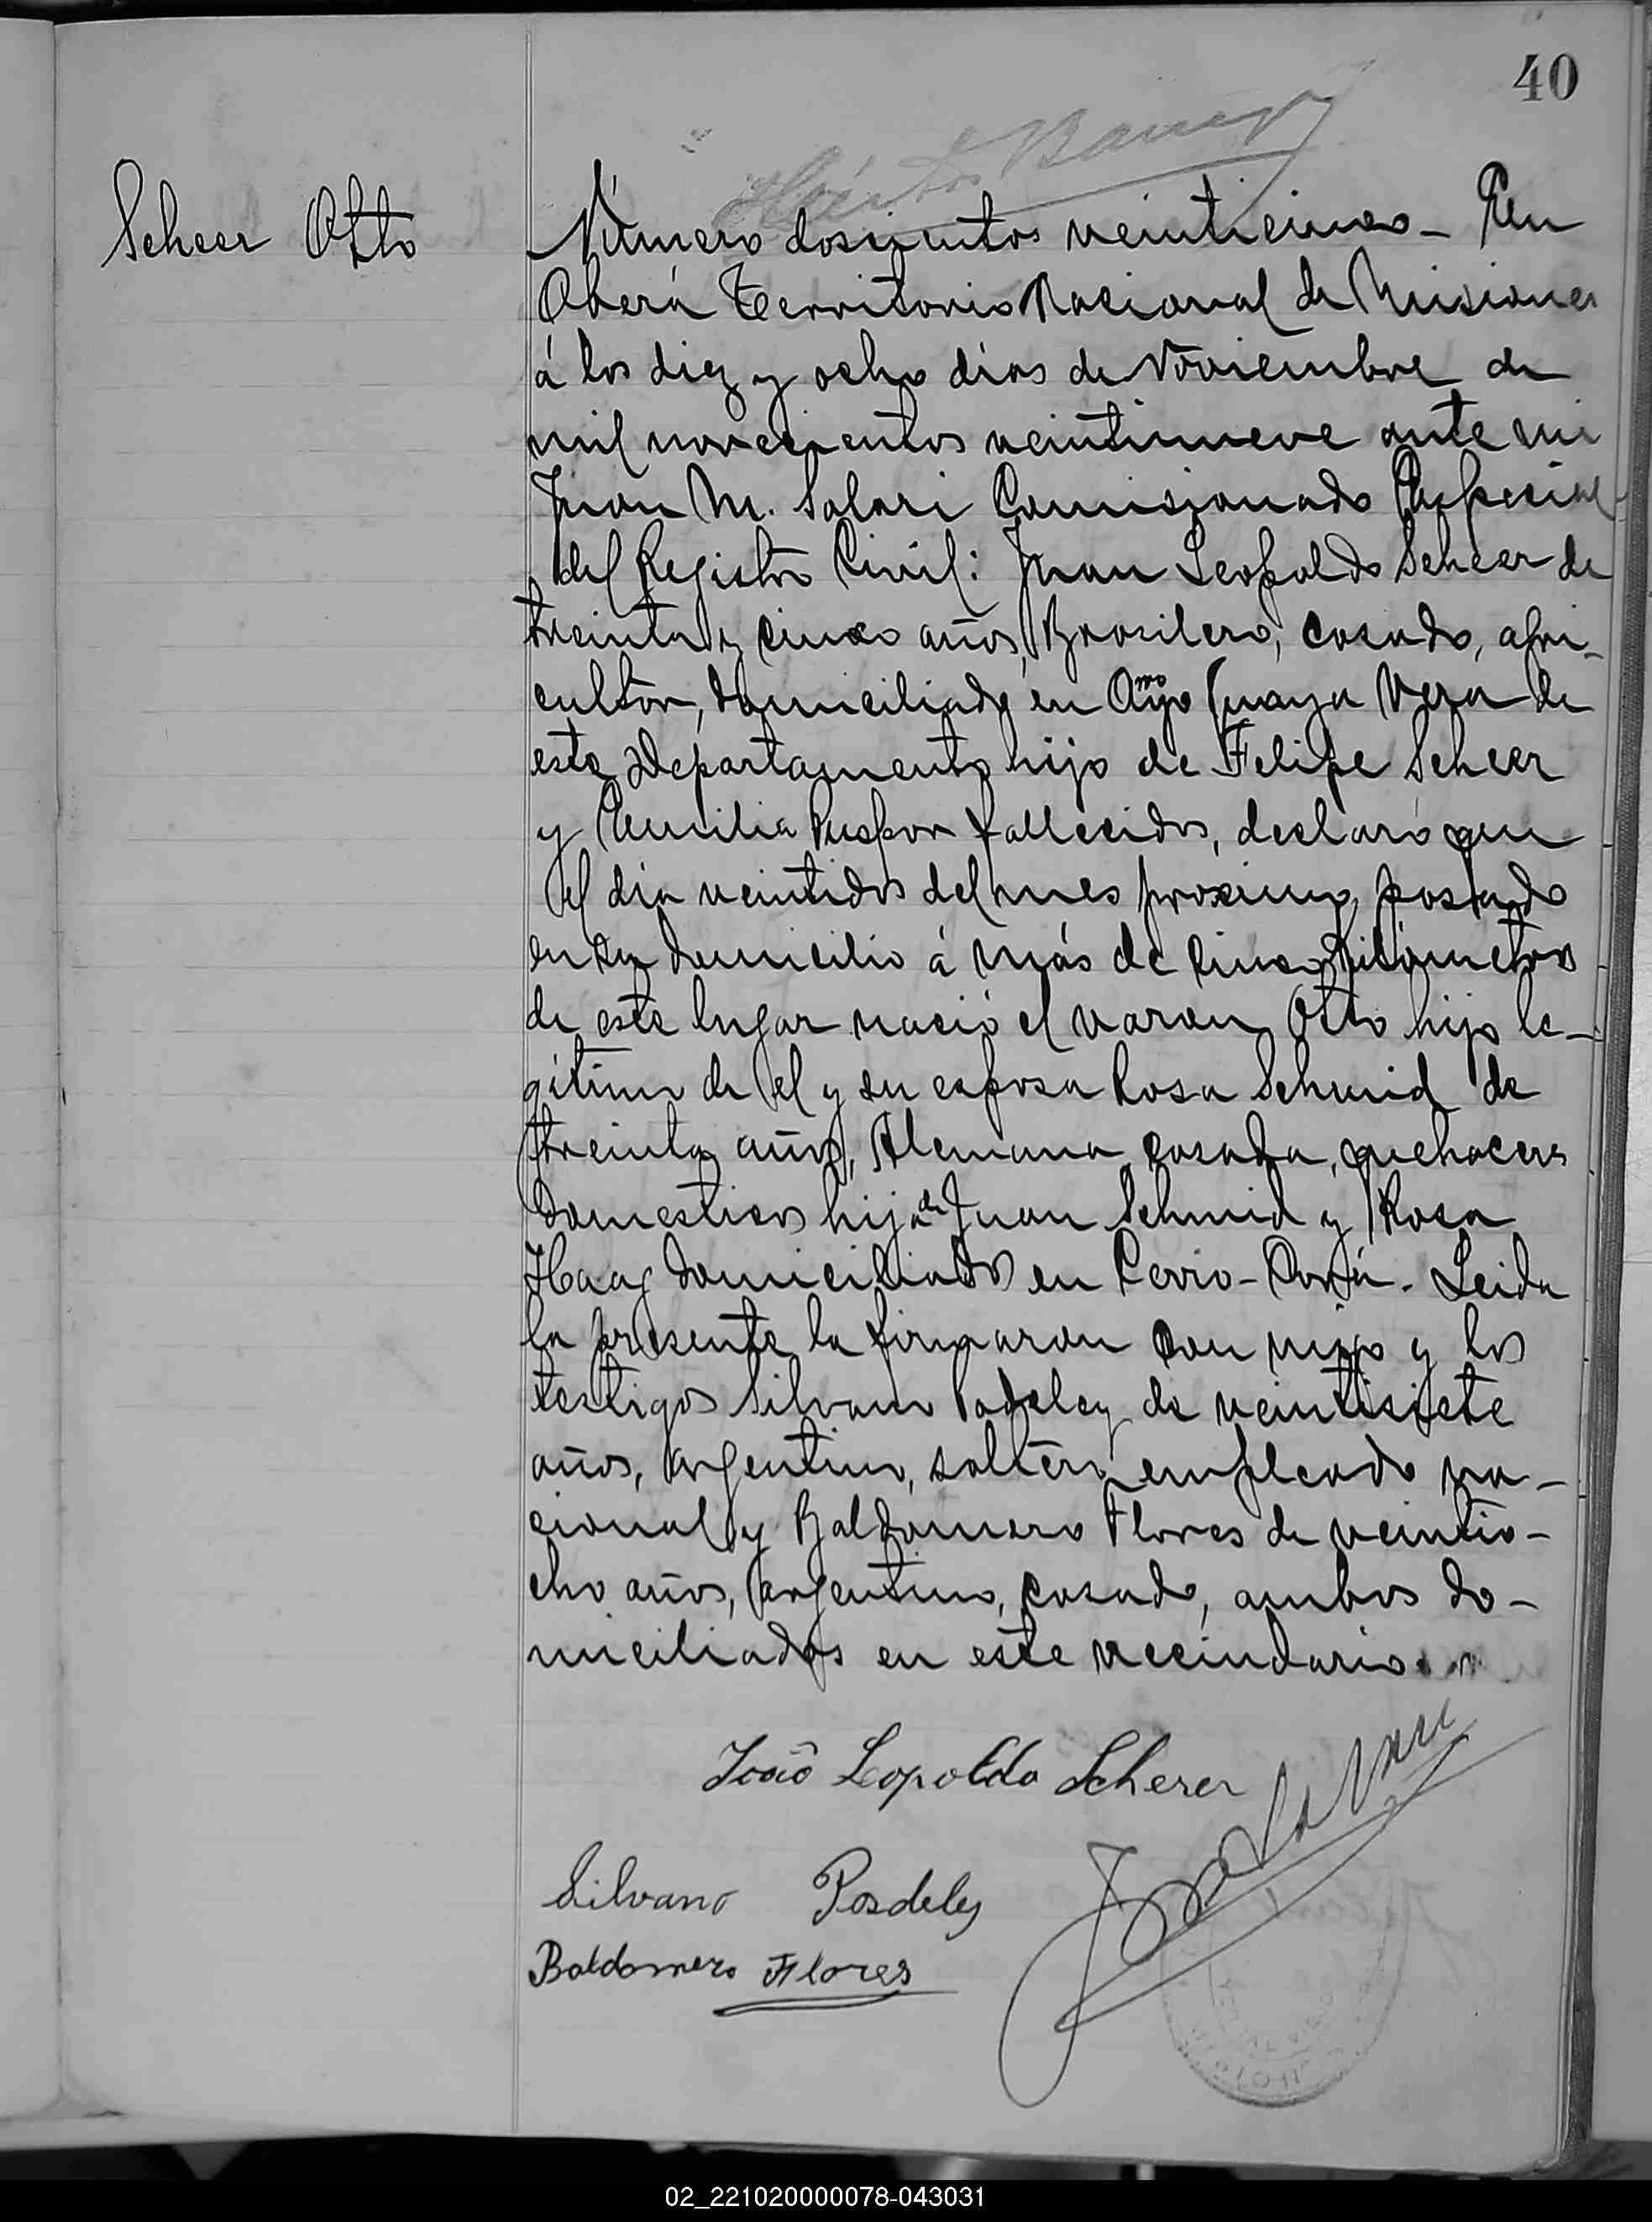 40
Scheer Otto
Número doscientos veinticinco - En
Oberá Territorio Nacional de Misiones
á los diez y ocho días de Noviembre de
mil novecientos veintinueve ante mi
Juan M. Salari Comisionado Especial
del Registro Civil: Juan Leopoldo Scheer de
treinta y cinco años, Brasilero, casado, agri-
cultor, domiciliado en Aryo Vera de
este Departamento hijo de Felipe Scheer
y Emilia fallecidos, declaró que
el día veintidos del mes proximo pasado
en su domicilio á más de cinco kilómetros
de este lugar nació el varon Otto hijo le-
gitimo de el y su esposa Rosa Schmid de
treinta años, Alemana, casada, quehaceres
domesticos hija de Juan Schmid y Rosa
Haag domiciliados en Cerro-Corá. Leida
la presente la firmaron con migo y los
testigos Silvano Posdeley de veintisiete
años, argentino, soltero, empleado na-
cional y Baldomero Flores de veintio-
cho años, argentino, casado, ambos do-
miciliados en este vecindario.
João Lopoldo Scherer
Silvano Posdeley
Baldomero Flores
02_221020000078-043031